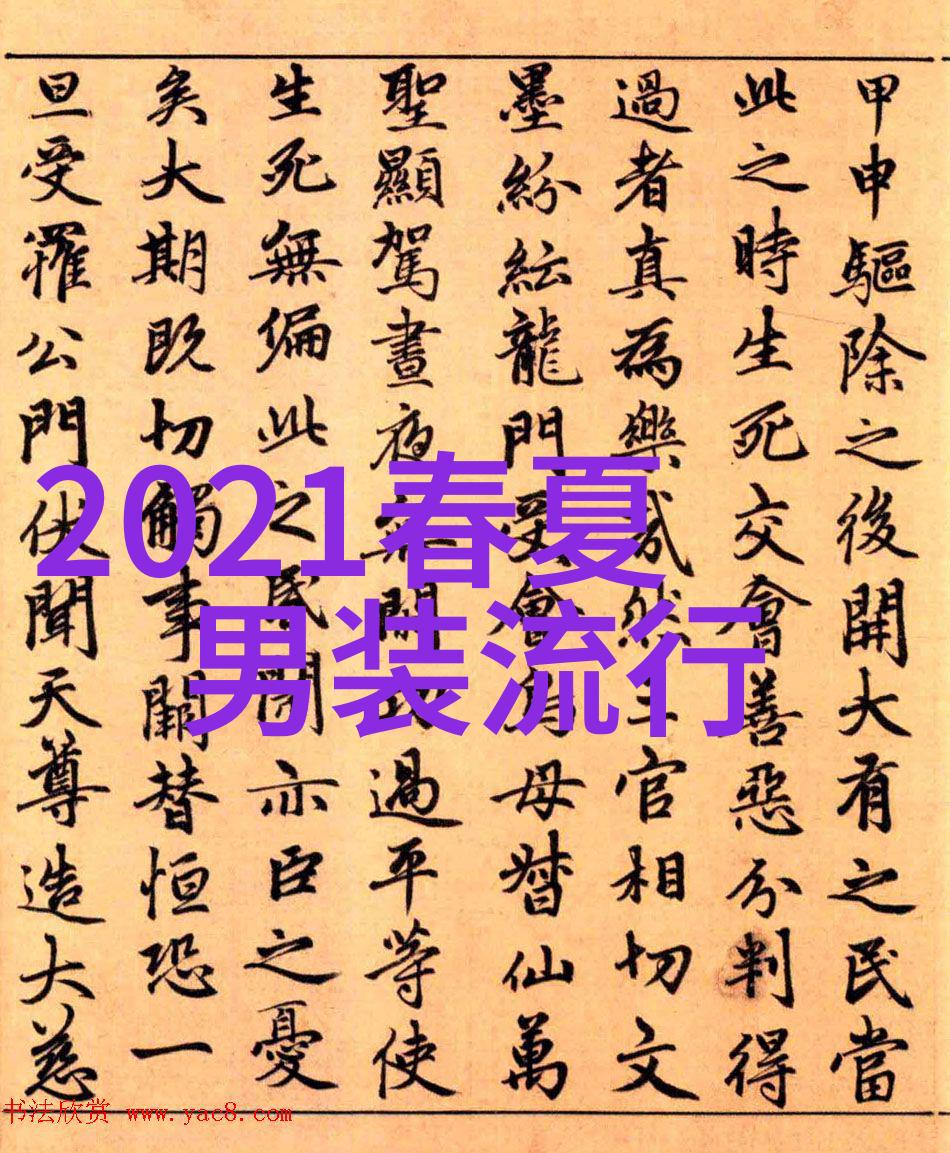 甲申驅除之後開大有之民當
此之時生死交會善惡分判得
過者真為樂哉然三官相切文
墨紛紜龍門受會母督仙萬
聖顯駕晝夜無閒過平等使
生死無偏此之閒亦臣之憂
矣大期既切觸事闕替恒恐一
旦受罹公門伏聞天尊造大慈
2021春夏
男装流行
书法欣赏 www.yac8.com